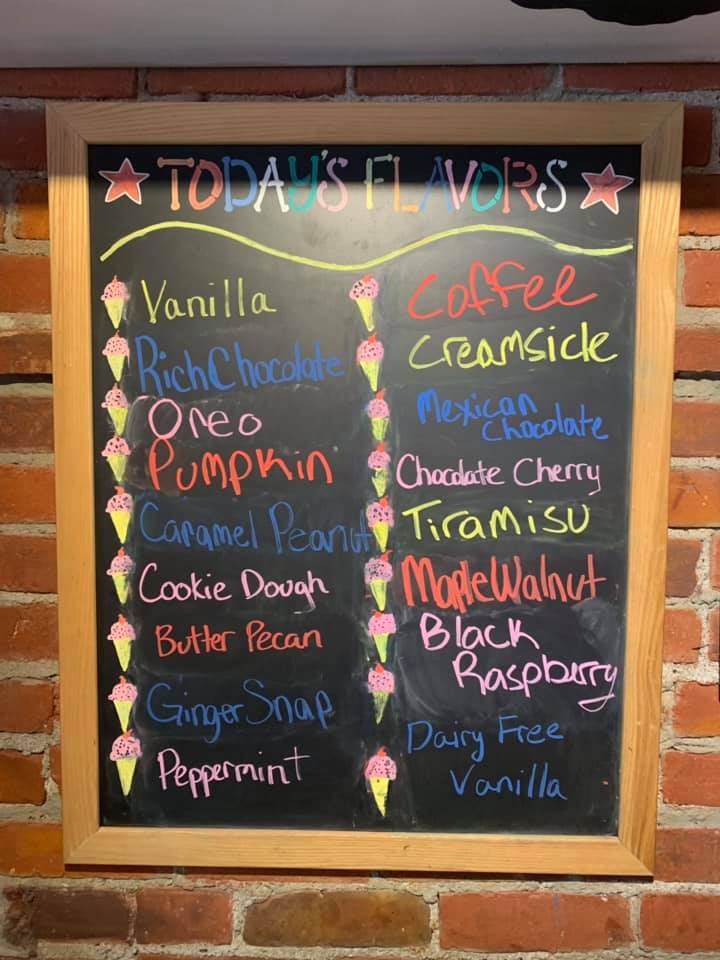 TODAY'S FLAVORS
Vanilla
Rich Chocolate
Oreo
Pumpkin
Caramel Peanut
Cookie Dough
Butter Pecan
Ginger Snap
Peppermint
Coffee
Creamsicle
Mexican
Chocolate
Chocolate Cherry
Tiramisu
Maple Walnut
Black
Raspberry
Dairy Free
Vanilla